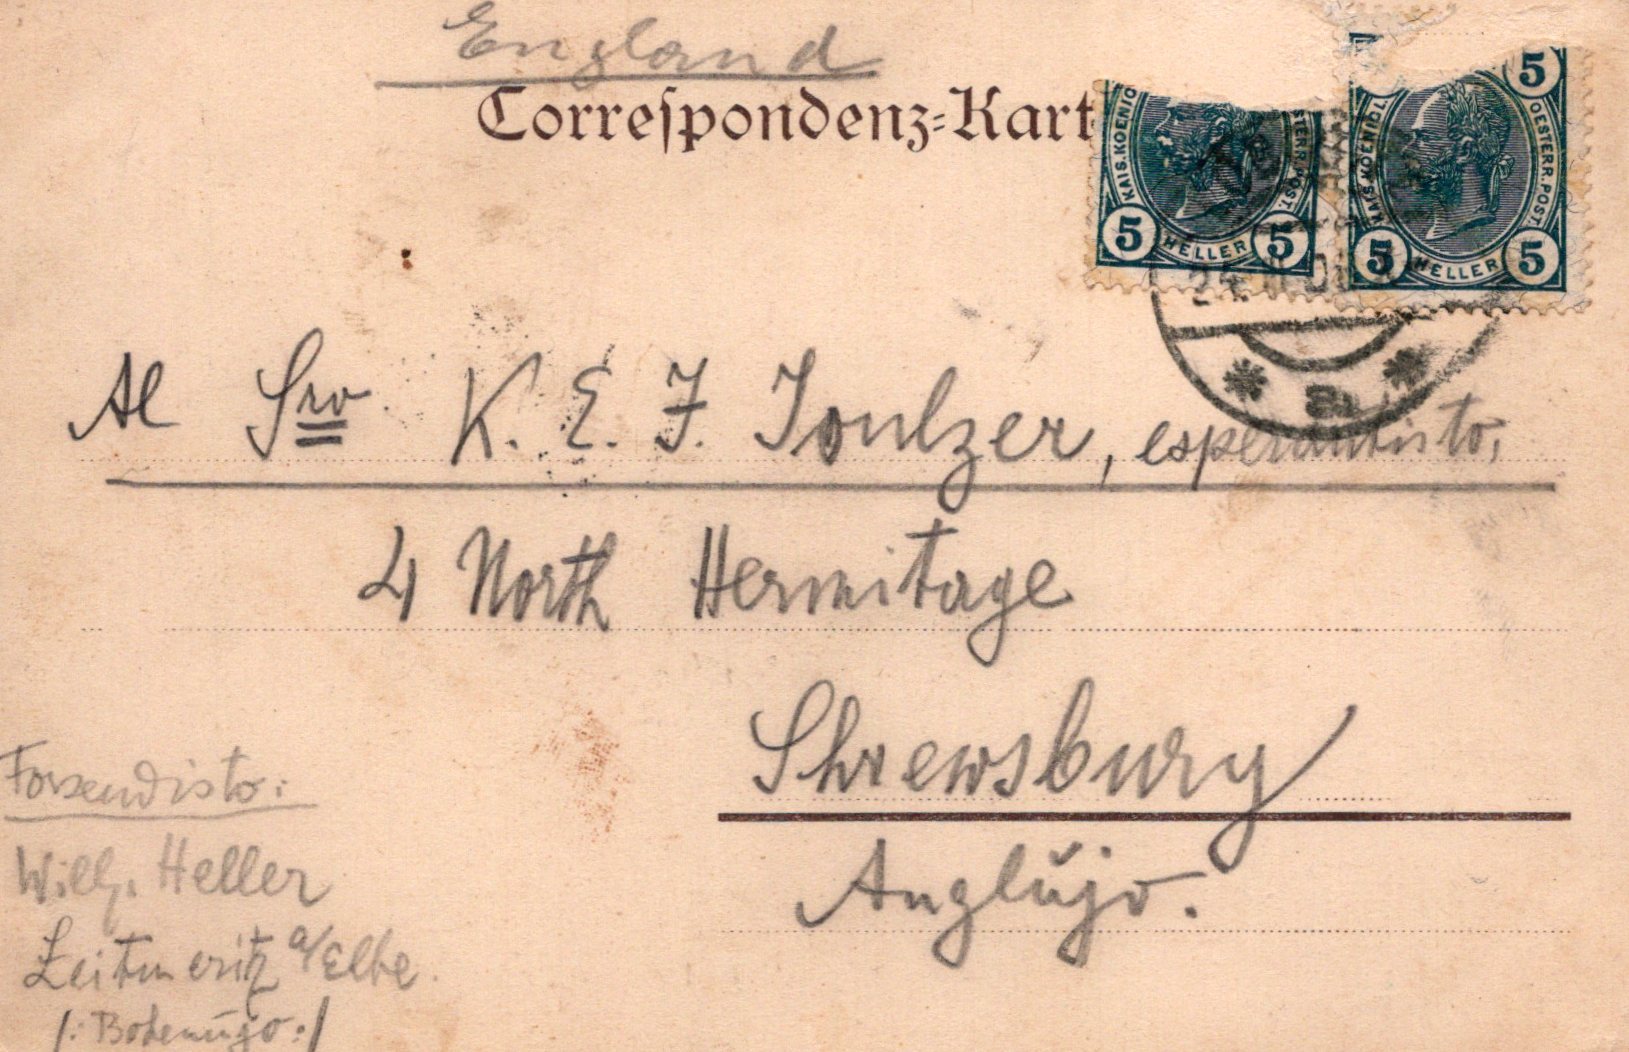 England
Correſpondenz-Kart
KAIS. KOENIG
STERR. POST.
5 HELLER 5
5
KAIS. KOENIGL.
OESTERR. POST.
5 HELLER 5
a
Al Sro K. E. F. Foulzer, esperantisto,
4 North Hermitage
Shrewsbury
Anglujo.
Forsendisto:
Wilh. Heller
Leitmeritz a/Elbe.
/: Bohemujo :/